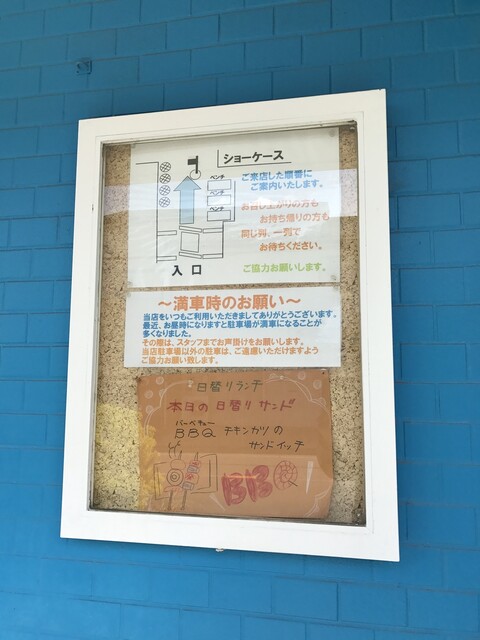 ショーケース
ベンチ
ベンチ
ベンチ
入口
ご来店した順番に
ご案内いたします。
お召し上がりの方も
お持ち帰りの方も
同じ列、一列で
お待ちください。
ご協力お願いします。
～満車時のお願い～
当店をいつもご利用いただきましてありがとうございます。
最近、お昼時になりますと駐車場が満車になることが
多くなりました。
その際は、スタッフまでお声掛けをお願いします。
当店駐車場以外の駐車は、ご遠慮いただけますよう
ご協力お願い致します。
日替りランチ
本日の日替りサンド
バーベキュー
BBQ チキンカツの
サンドイッチ
BB